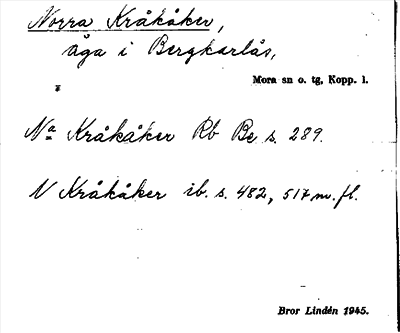 Norra Kråkåker,
åga i Bergkarlås,
Mora sn o. tg, Kopp. l.
Na Kråkåker Rb Be s. 289.
N Kråkåker ib. s. 482, 517 m. fl.
Bror Lindén 1945.